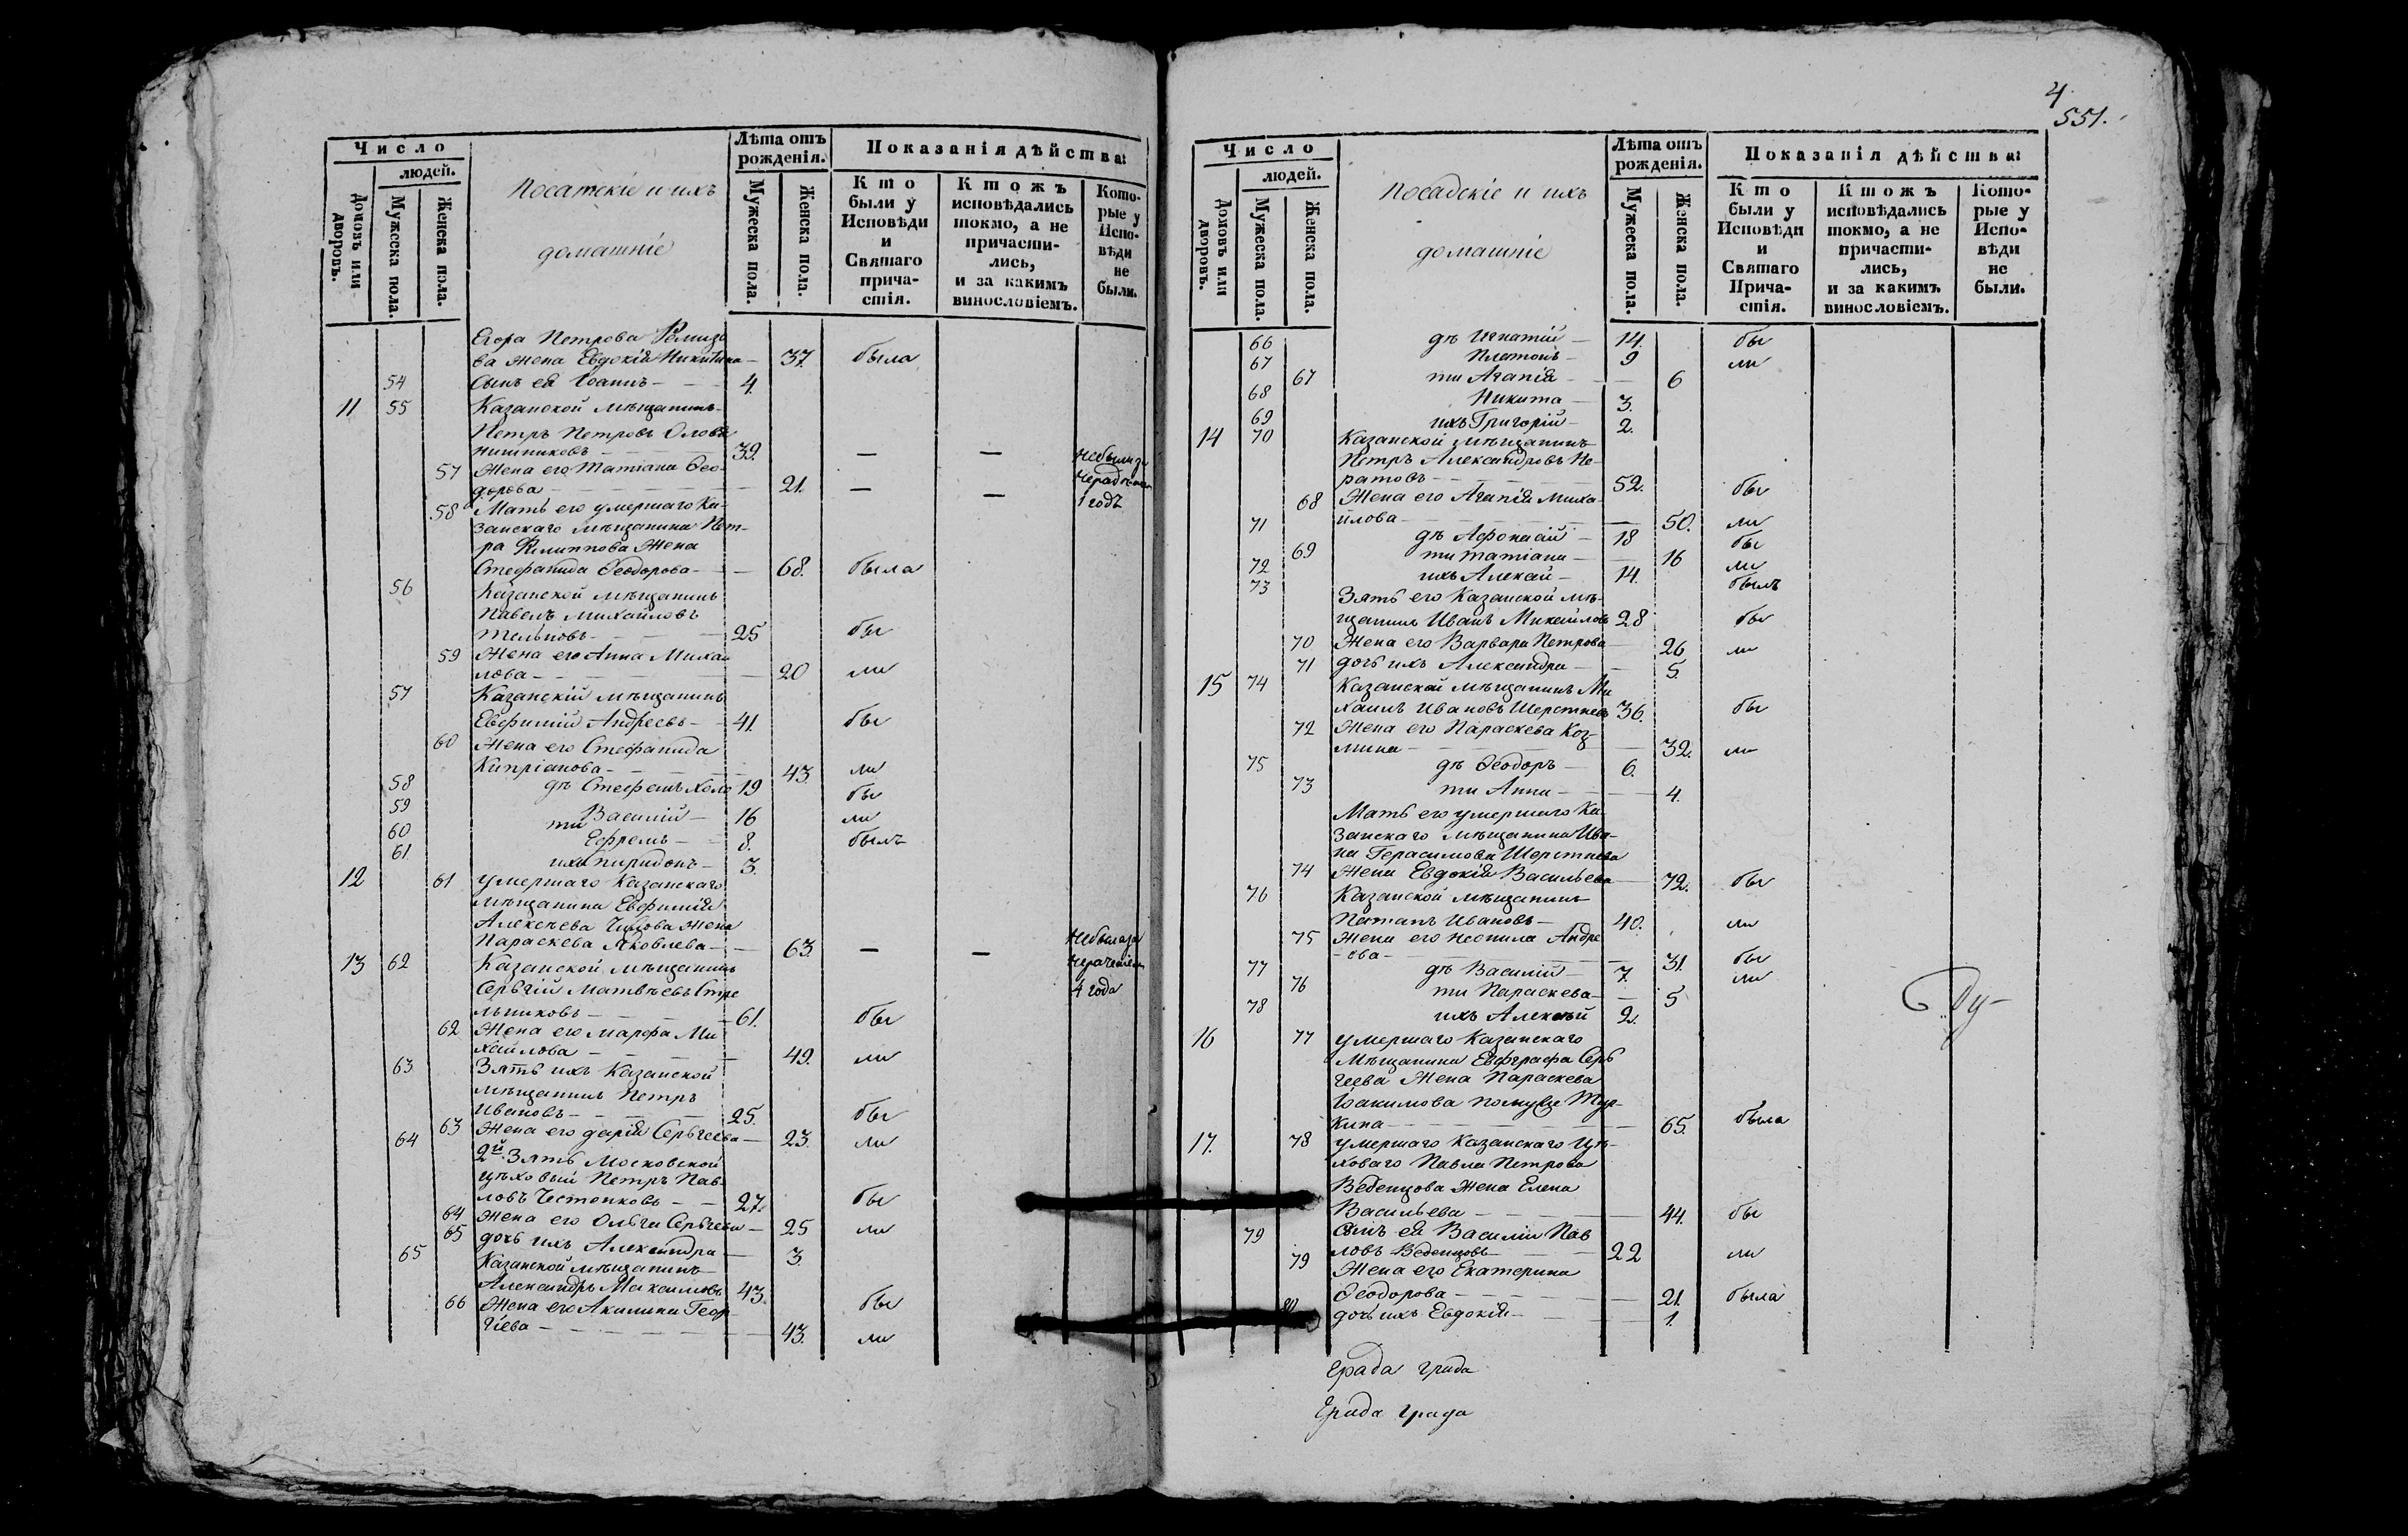 Число
людей.
Домовъ или дворовъ.
Мужеска пола.
Женска пола.
Посатскіе и ихъ
домашніе
Лѣта отъ
рожденія.
Мужеска пола.
Женска пола.
Показанія дѣйства:
Кто
были у
Исповѣди
и
Святаго
прича-
стія.
Ктожъ
исповѣдались
токмо, а не
причасти-
лись,
и за какимъ
винословіемъ.
Кото-
рые у
Испо-
вѣди
не
были.
Егора Петрова Ремизо
ва жена Евдокія Никитина — 37. была
54 Сынъ ея Іоаннъ — 4.
11 55 Казанской мѣщанинъ
Петръ Петровъ Оловя
нишниковъ — 39. — —
57 Жена его Татіана Ѳео-
дорова — 21. — —
1 годъ
58 Мать его умершаго Ка-
занскаго мѣщанина Пет-
ра Филиппова жена
Стефанида Ѳеодорова — 68. была
56 Казанской мѣщанинъ
Павелъ Михайловъ
25 бы
59 Жена его Анна Михаи
лова — 20 ли
57 Казанскій мѣщанинъ
Евфимій Андреевъ — 41. бы
60 Жена его Стефанида
Кипріанова — 43. ли
58 дѣ Стефанъ 19 бы
59 Василій — 16 ли
ти
60 Ефремъ — 8. былъ
61 ихъ Спиридонъ — 3.
12 61 умершаго Казанскаго
мѣщанина Евфимія
Алексѣева жена
Параскева Яковлева — 63. — —
4 года
13 62 Казанской мѣщанинъ
Сергій Матвѣевъ Стре
льниковъ — 61. бы
62 Жена его Марфа Ми
хайлова — 49. ли
63 Зять ихъ Казанской
мѣщанинъ Петръ
Ивановъ — 25. бы
63 Жена его Дарія Сергѣева — 23. ли
64 2й Зять Московской
цѣховый Петръ Пав
ловъ Честенковъ — 27. бы
64 Жена его Ольга Сергѣева — 25 ли
65 дочь ихъ Александра — 3.
65 Казанской мѣщанинъ
Александръ Максимовъ 43. бы
66 Жена его Акилина Геор
гіева — 43. ли
4
551.
Число
людей.
Домовъ или дворовъ.
Мужеска пола.
Женска пола.
Посадскіе и ихъ
домашніе
Лѣта отъ
рожденія.
Мужеска пола.
Женска пола.
Показанія дѣйства:
Кто
были у
Исповѣди
и
Святаго
Прича-
стія.
Ктожъ
исповѣдались
токмо, а не
причасти-
лись,
и за какимъ
винословіемъ.
Кото-
рые у
Испо-
вѣди
не
были.
66 дѣ Игнатій — 14. бы
67 Платонъ — 9 ли
67 ти Агапія — 6
68 Никита — 3.
69 ихъ Григорій — 2.
14 70 Казанской мѣщанинъ
Петръ Александровъ Не-
ратовъ — 52. бы
68 Жена его Агапія Миха
йлова — 50. ли
71 дѣ Афонасій — 18 бы
69 ти Татіана — 16 ли
72 ихъ Алексѣй — 14. былъ
73 Зять его Казанской мѣ-
щанинъ Иванъ Михайловъ 28 бы
70 Жена его Варвара Петрова — 26 ли
71 дочь ихъ Александра — 5.
15 74 Казанской мѣщанинъ Ми
хаилъ Ивановъ Шерстневъ 36. бы
72 Жена его Параскева Коз-
мина — 32. ли
75 дѣ Ѳеодоръ — 6.
73 ти Анна — 4.
Мать его умершаго Ка-
занскаго мѣщанина Ива-
на Герасимова Шерстнева
74 Жена Евдокія Васильева — 72. бы
76 Казанской мѣщанинъ
Потапъ Ивановъ — 40. ли
75 Жена его Неонила Андре
-ова — 31. бы
77 дѣ Василій — 7. ли
76 ти Параскева — 5
78 ихъ Алексѣй 2.
Ду-
16 77 умершаго Казанскаго
Мѣщанина Евфграфа Серь
геева Жена Параскева
Іоакимова
кина — 65. была
17. 78 умершаго Казанскаго Цѣ-
ховаго Павла Петрова
Веденцова Жена Елена
Васильева — 44. бы
79 Сынъ ея Василій Пав
ловъ Веденцовъ — 22 ли
79 Жена его Екатерина
Ѳеодорова — 21. была
80 дочь ихъ Евдокія — 1.
Града града
Града града